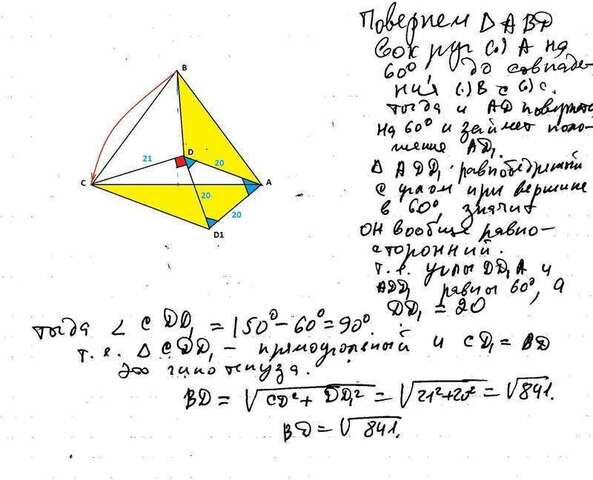 B
Повернем △ ABD
вокруг (·) A на
60° до совпаде-
ния (·) B с (·) C.
тогда и AD повернется
на 60° и займет поло-
жение AD₁.
△ ADD₁ равнобедренный
с углом при вершине
в 60°, значит
он вообще равно-
сторонний.
т.е. углы DD₁A и
ADD₁ равны 60°, а
DD₁ = 20
21
D
20
C
20
A
20
D1
тогда ∠ CDD₁ = 150° - 60° = 90°.
т.е. △ CDD₁ - прямоугольный и CD₁ = BD
это гипотенуза.
BD = √CD² + DD₁² = √21² + 20² = √841.
BD = √841.